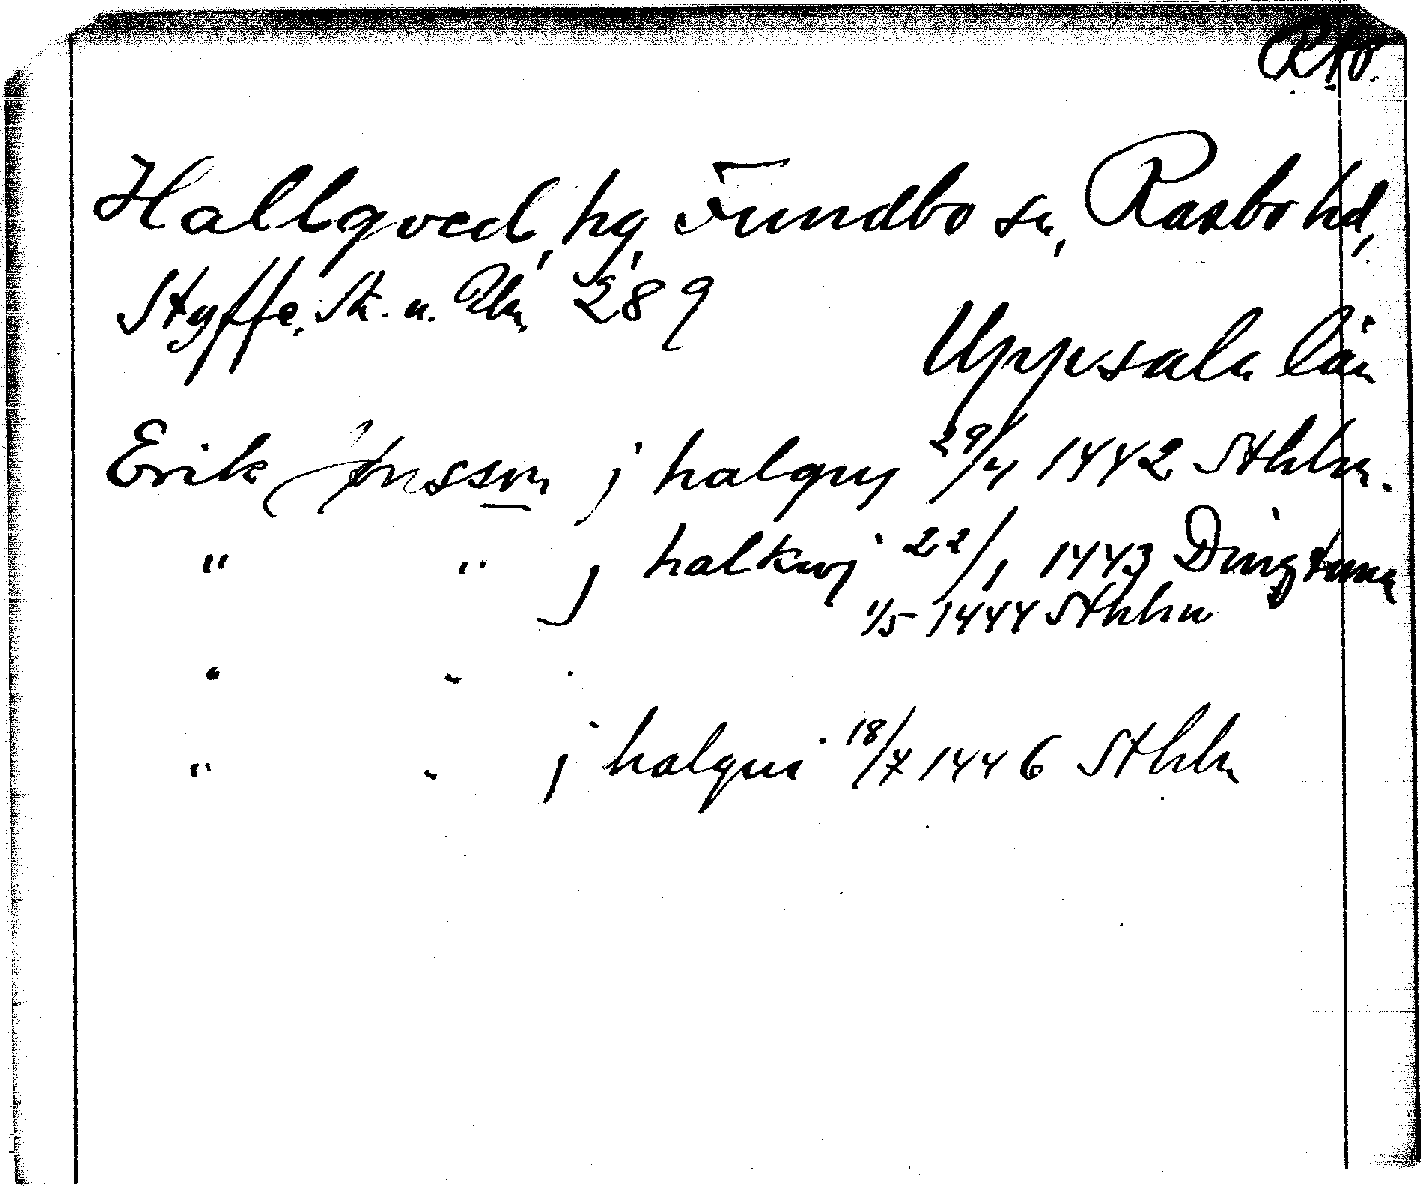 Hallqved, hg, Fundbo sn, Rasbo hd,
Styffe, Sk. u. Un 289
Uppsala län
Erik Jönsson j halquj 29/4 1442 Sthlm.
" " j halkwj 22/1 1443 Dingtuna
1/5 1444 Sthlm
" "
" " j halqui 18/7 1446 Sthlm